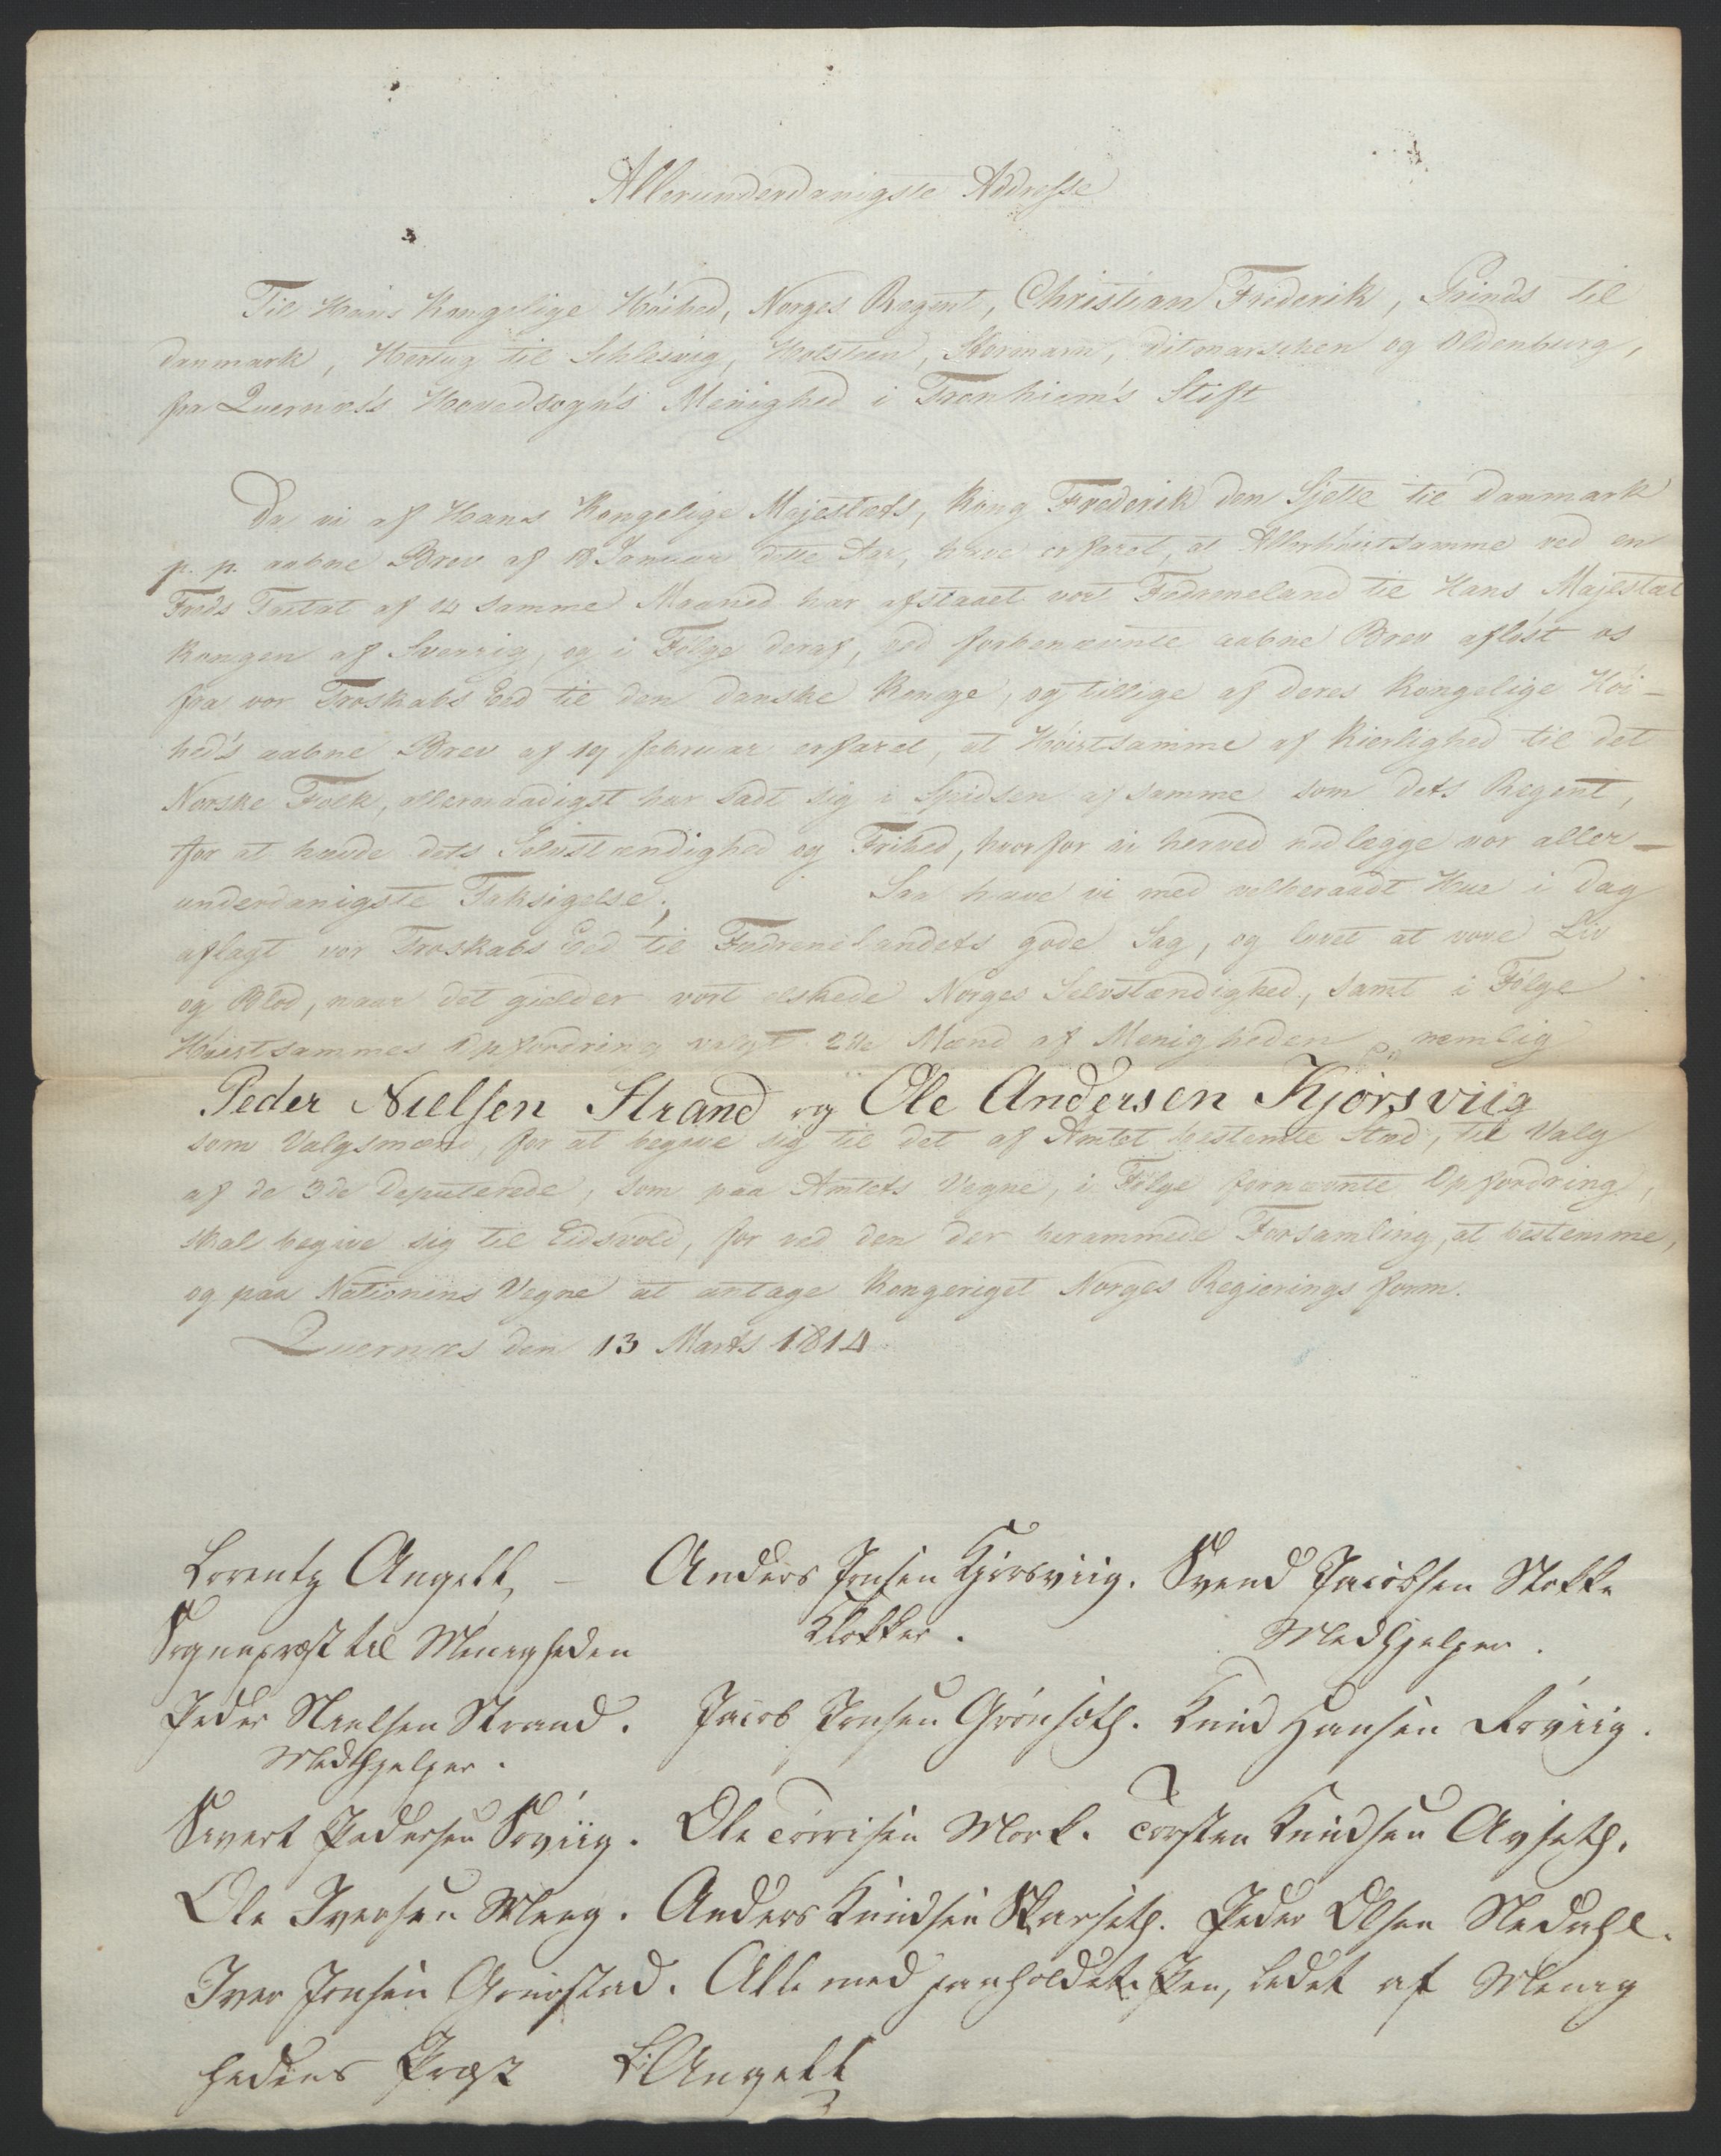 Allerunderdanigste Addresse
Til Hans Kongelige Höihed, Norges Regent, Christian Frederik, Prinds til
Danmark, Hertug til Schlesvig, Holsteen, Stormarn, Ditmarschen og Oldenburg,
fra Quernæs's Hovedsogn's Menighed i Tronhiem's Stift
Da vi af Hans Kongelige Majestæts, Kong Frederik den Sjette til Danmark
p. p. aabne Brev af 18 Januar dette Aar, have erfaret, at Allerhöistsamme ved en
Freds Tractat af 14 samme Maaned har afstaaet vort Födeneland til Hans Majestæt
Kongen af Sverrig, og i Fölge deraf, ved forbenævnte aabne Brev aflöst os
fra vor Troskabs Eed til den danske Konge, og tillige af Deres Kongelige Höi-
hed's aabne Brev af 19 februar erfaret, at Höistsamme af Kierlighed til det
Norske Folk, allernaadigst har sadt sig i Spidsen af samme som dets Regent,
for at hævde dets Selvstændighed og Frihed, hvorfor vi herved nedlægge vor aller-
underdanigste Taksigelse; Saa have vi med velberaadt Hue i Dag
aflagt vor Troskabs Eed til Fædrenelandets gode Sag, og lovet at vove Liv
og Blod, naar det gielder vort elskede Norges Selvstændighed, samt i Fölge
Höistsammes Opfordring valgt 2de Mænd af Menigheden nemlig
Peder Nielsen Strand og Ole Andersen Kjörsviig
som Valgsmænd, for at begive sig til det af Amtet bestemte Sted, til Valg
af de 3de Deputerede, som paa Amtets Vegne, i Fölge fornævnte Opfordring,
skal begive sig til Eidsvold, for ved den der berammede Forsamling, at bestemme,
og paa Nationens Vegne at antage Kongeriget Norges Regierings form.
Quernæs den 13 Marts 1814
Lorentz Angell, – Anders Jonsen Kjörsviig. Svend Jacobsen Stokke
Sognepræst til Menigheden Klokker. Medhjelper.
Peder Nielsen Strand. Jacob Jonsen Grönseth. Knud Hansen
Medhjelper.
Sivert Pedersen Ole Mork. Torsten Knudsen
Ole Iversen Meeg. Anders Knudsen Skarseth. Peder Olsen
Iver Jonsen Alle med paaholdet Pen, ledet af Menig
hedens Præst L: Angell